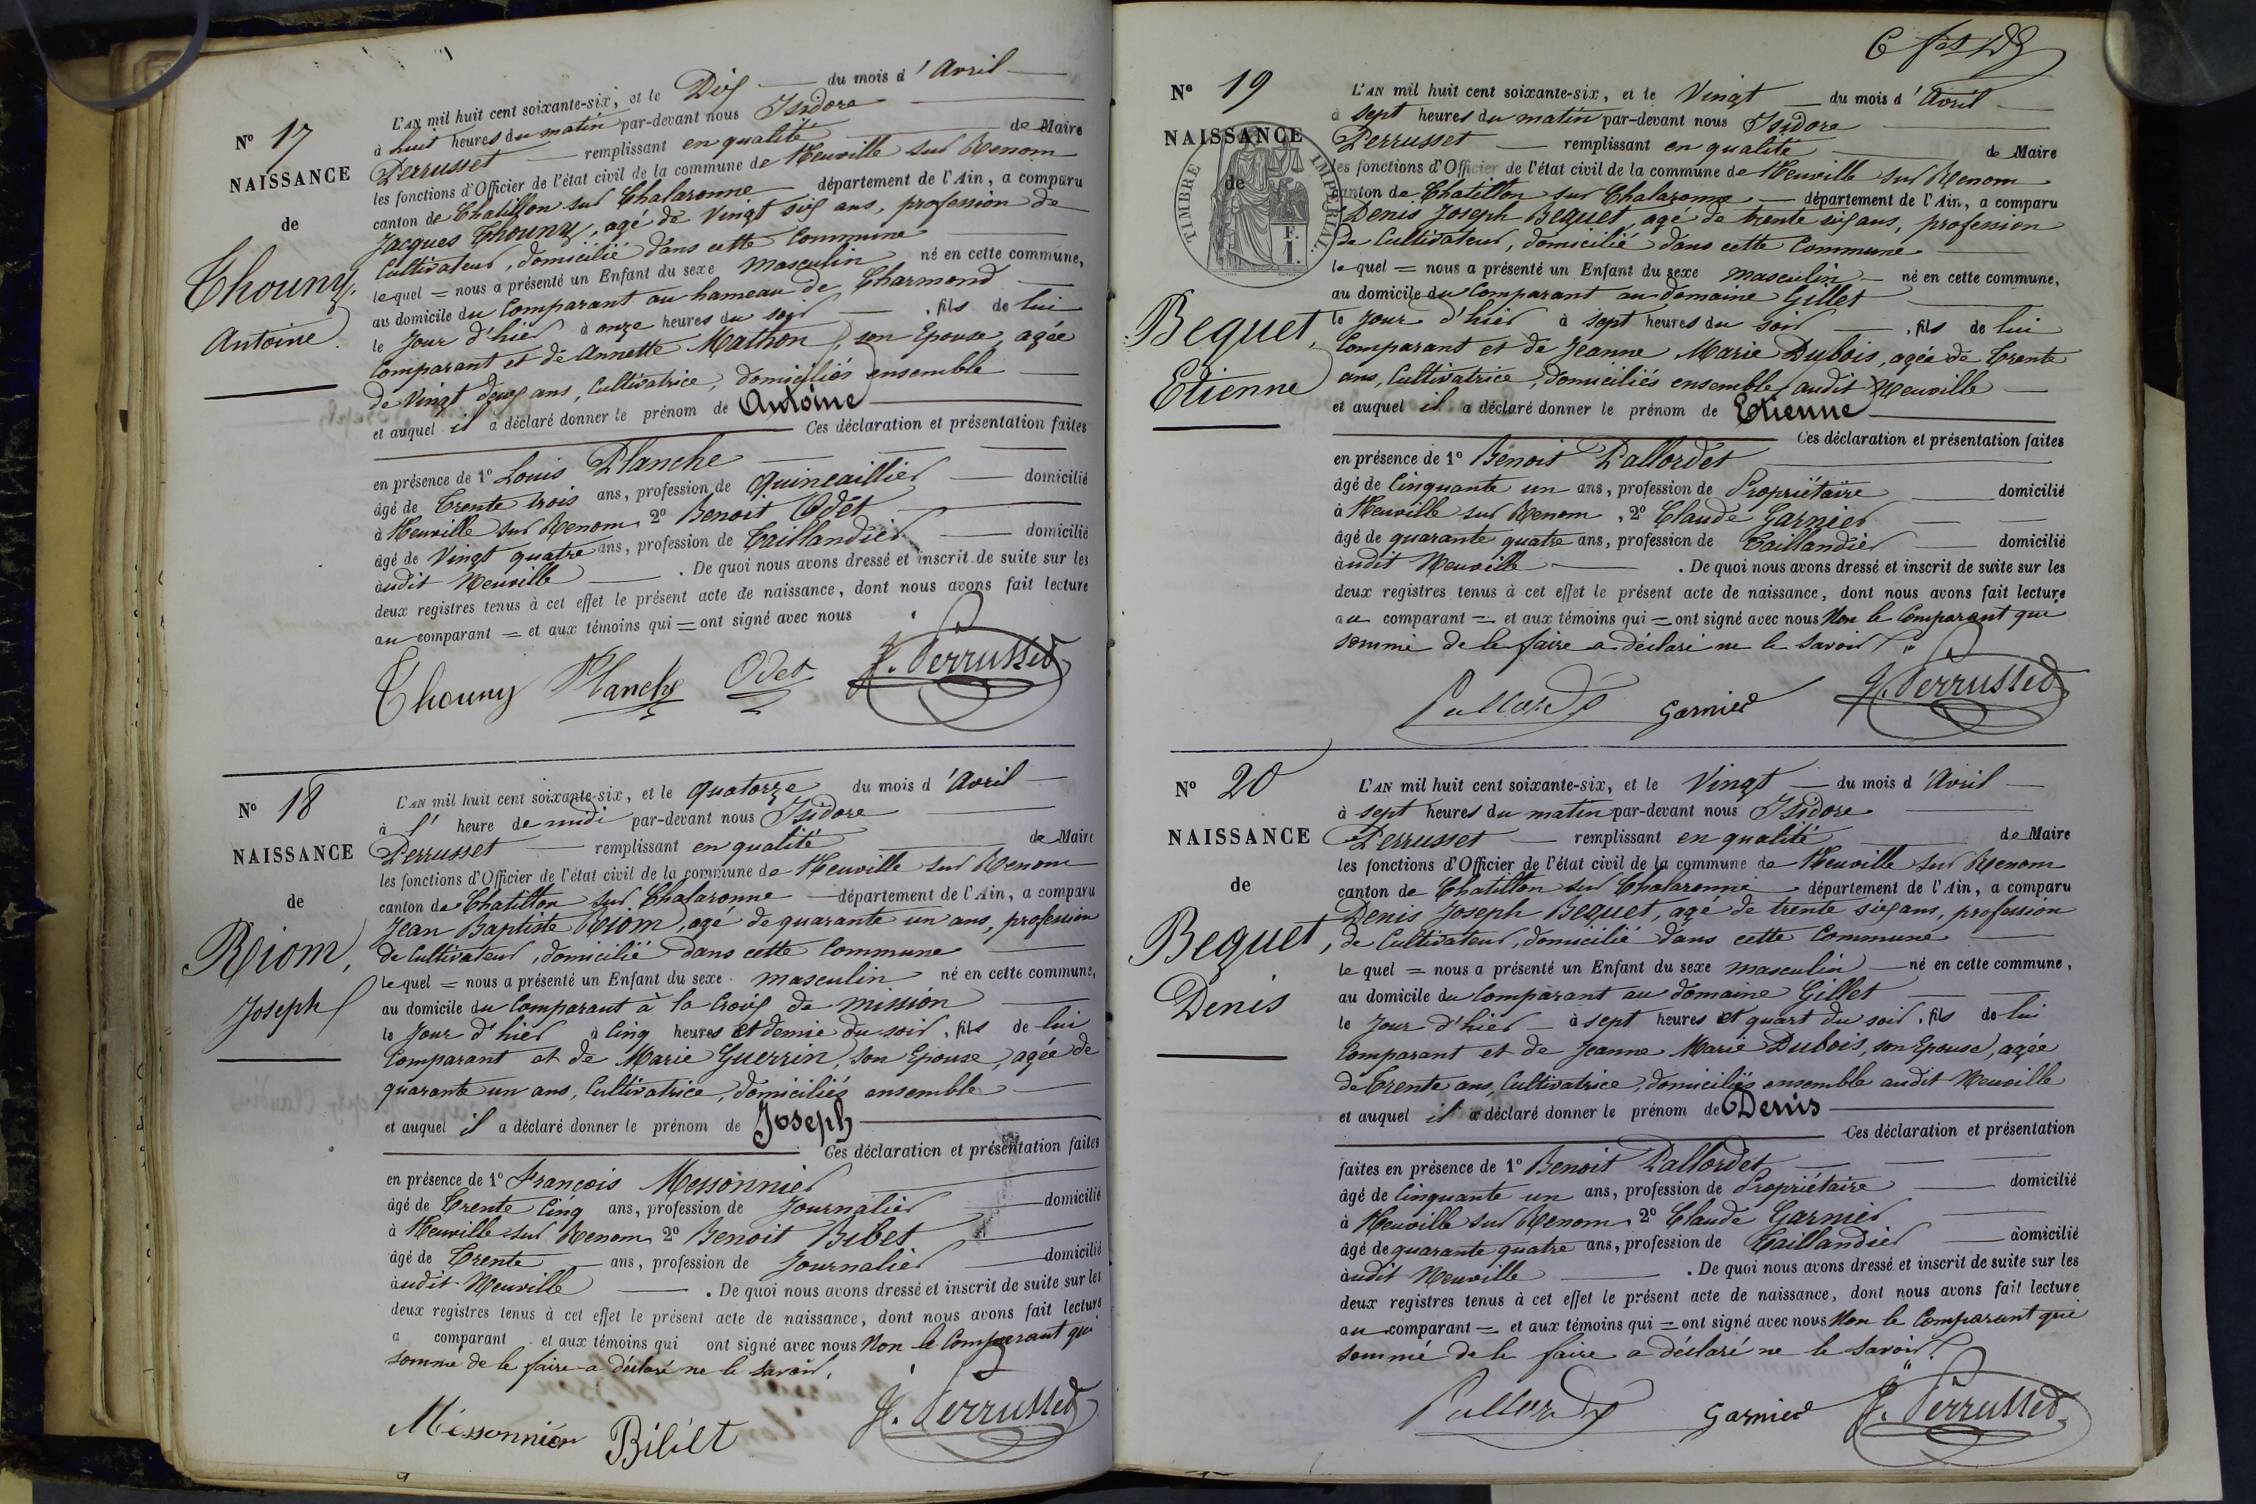 N° 17
NAISSANCE
de
Thouny,
Antoine
L'AN mil huit cent soixante-six, et le Dix du mois d'Avril
à huit heures du matin par-devant nous Isidore
Perrusset remplissant en qualité de Maire
les fonctions d'Officier de l'état civil de la commune de Neuville sur Renom
canton de Chatillon sur Chalaronne département de l'Ain, a comparu
Jacques Thouny, agé de Vingt six ans, profession de
Cultivateur, domicilié dans cette Commune
lequel = nous a présenté un Enfant du sexe masculin né en cette commune,
au domicile du Comparant au hameau de Charmond
le Jour d'hier à onze heures du soir, fils de lui
Comparant et de Annette Mathon, son Epouse, agée
de Vingt deux ans, Cultivatrice, domiciliés ensemble
et auquel il a déclaré donner le prénom de Antoine
Ces déclaration et présentation faites
en présence de 1° Louis Planche
âgé de Trente trois ans, profession de Quincaillier domicilié
à Neuville sur Renom, 2° Benoit Odet
âgé de Vingt quatre ans, profession de Taillandier domicilié
audit Neuville. De quoi nous avons dressé et inscrit de suite sur les
deux registres tenus à cet effet le présent acte de naissance, dont nous avons fait lecture
au comparant = et aux témoins qui = ont signé avec nous
Thouny Planche Odet J. Perrusset
N° 18
NAISSANCE
de
Riom,
Joseph
L'AN mil huit cent soixante-six, et le quatorze du mois d'Avril
à l' heure de midi par-devant nous Isidore
Perrusset remplissant en qualité de Maire
les fonctions d'Officier de l'état civil de la commune de Neuville sur Renom
canton de Chatillon sur Chalaronne département de l'Ain, a comparu
Jean Baptiste Riom, agé de quarante un ans, profession
de Cultivateur, domicilié dans cette Commune
lequel = nous a présenté un Enfant du sexe masculin né en cette commune,
au domicile du Comparant à la Croix de mission
le Jour d'hier à Cinq heures et demie du soir, fils de lui
Comparant et de Marie Guerrin, son Epouse, agée de
quarante un ans, Cultivatrice, domiciliés ensemble
et auquel il a déclaré donner le prénom de Joseph
Ces déclaration et présentation faites
en présence de 1° François Messonnier
âgé de Trente Cinq ans, profession de Journalier domicilié
à Neuville sur Renom, 2° Benoit Bibet
âgé de Trente ans, profession de Journalier domicilié
audit Neuville. De quoi nous avons dressé et inscrit de suite sur les
deux registres tenus à cet effet le présent acte de naissance, dont nous avons fait lecture
a comparant et aux témoins qui ont signé avec nous Non le Comparant qui
sommé de le faire a déclaré ne le savoir.
Messonnier Bibet J. Perrusset
N° 19
NAISSANCE
de
TIMBRE IMPERIAL.
F.
1.
Bequet,
Etienne
L'AN mil huit cent soixante-six, et le Vingt du mois d'Avril
à sept heures du matin par-devant nous Isidore
Perrusset remplissant en qualité de Maire
les fonctions d'Officier de l'état civil de la commune de Neuville sur Renom
canton de Chatillon sur Chalaronne département de l'Ain, a comparu
Denis Joseph Bequet, agé de trente six ans, profession
de Cultivateur, domicilié dans cette Commune
lequel = nous a présenté un Enfant du sexe masculin né en cette commune,
au domicile du Comparant au domaine Gillet
le Jour d'hier à sept heures du soir, fils de lui
Comparant et de Jeanne Marie Dubois, agée de Trente
ans, Cultivatrice, domiciliés ensemble audit Neuville
et auquel il a déclaré donner le prénom de Etienne
Ces déclaration et présentation faites
en présence de 1° Benoit Pallordet
âgé de Cinquante un ans, profession de Propriétaire domicilié
à Neuville sur Renom, 2° Claude Garnier
âgé de quarante quatre ans, profession de Taillandier domicilié
audit Neuville. De quoi nous avons dressé et inscrit de suite sur les
deux registres tenus à cet effet le présent acte de naissance, dont nous avons fait lecture
au comparant = et aux témoins qui = ont signé avec nous Non le Comparant qui
sommé de le faire a déclaré ne le savoir
Garnier J. Perrusset
N° 20
NAISSANCE
de
Bequet,
Denis
L'AN mil huit cent soixante-six, et le Vingt du mois d'Avril
à sept heures du matin par-devant nous Isidore
Perrusset remplissant en qualité de Maire
les fonctions d'Officier de l'état civil de la commune de Neuville sur Renom
canton de Chatillon sur Chalaronne département de l'Ain, a comparu
Denis Joseph Bequet, agé de trente six ans, profession
de Cultivateur, domicilié dans cette Commune
lequel = nous a présenté un Enfant du sexe masculin né en cette commune,
au domicile du Comparant au domaine Gillet
le Jour d'hier à sept heures et quart du soir, fils de lui
Comparant et de Jeanne Marie Dubois, son Epouse, agée
de Trente ans, Cultivatrice, domiciliés ensemble audit Neuville
et auquel il a déclaré donner le prénom de Denis
Ces déclaration et présentation
faites en présence de 1° Benoit Pallordet
âgé de Cinquante un ans, profession de Propriétaire domicilié
à Neuville sur Renom, 2° Claude Garnier
âgé de quarante quatre ans, profession de Taillandier domicilié
audit Neuville. De quoi nous avons dressé et inscrit de suite sur les
deux registres tenus à cet effet le présent acte de naissance, dont nous avons fait lecture
au comparant = et aux témoins qui = ont signé avec nous Non le Comparant qui
sommé de le faire a déclaré ne le savoir
Garnier J. Perrusset